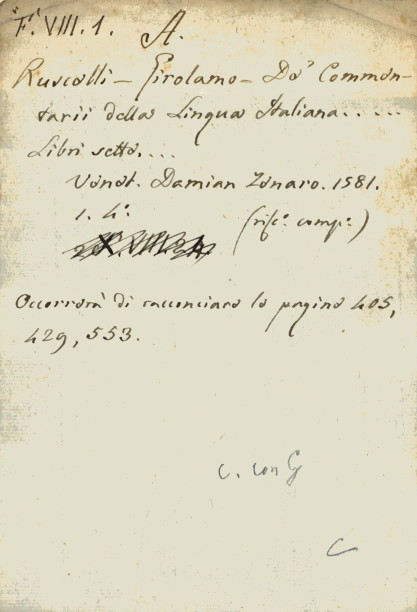 F. VIII. 1. A.
Ruscelli - Girolamo - De' Commen-
tarii della Lingua Italiana.. ...
Libri sette....
Venet. Damian Zenaro. 1581.
1. 4°. (rifc. comp.)
Occorrerà di racconciare le pagine 405,
429, 553.
C. con G
C